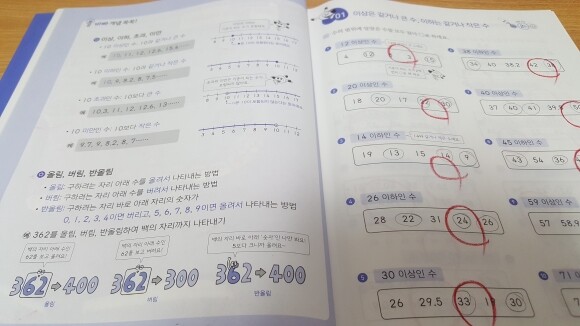 개념 쏙쏙!
이상, 이하, 초과, 미만
10, 11, 12, 12.6, 13.6……
10, 9, 8.2, 8, 7.3……
• 10 초과인 수: 10보다 큰 수
예 10.3, 11, 12, 12.6, 13……
• 10 미만인 수: 10보다 작은 수
예 9.7, 9, 8.2, 8, 7……
올림, 버림, 반올림
• 올림: 구하려는 자리 아래 수를 올려서 나타내는 방법
• 버림: 구하려는 자리 아래 수를 버려서 나타내는 방법
• 반올림: 구하려는 자리 바로 아래 자리의 숫자가
0, 1, 2, 3, 4이면 버리고, 5, 6, 7, 8, 9이면 올려서 나타내는 방법
예 362를 올림, 버림, 반올림하여 백의 자리까지 나타내기
백의 자리 아래 수인
62를 보고 올려요!
백의 자리 아래 수인
62를 보고 버려요!
5보다 크니까 올려요~
362 → 400
올림
362 → 300
버림
362 → 400
반올림
701
이상은 같거나 큰 수, 이하는 같거나 작은 수
12 이상인 수
38 이상인 수
34 40 38.2 42
20 이상인 수
18 20 17 30
40 이상인 수
37 40 41 39.8 50
14 이하인 수
19 13 15 14 9
45 이하인 수
43 54 36
26 이하인 수
28 22 31 24 26
59 이하인 수
57 58.9
30 이상인 수
26 29.5 33 19 30
71 이